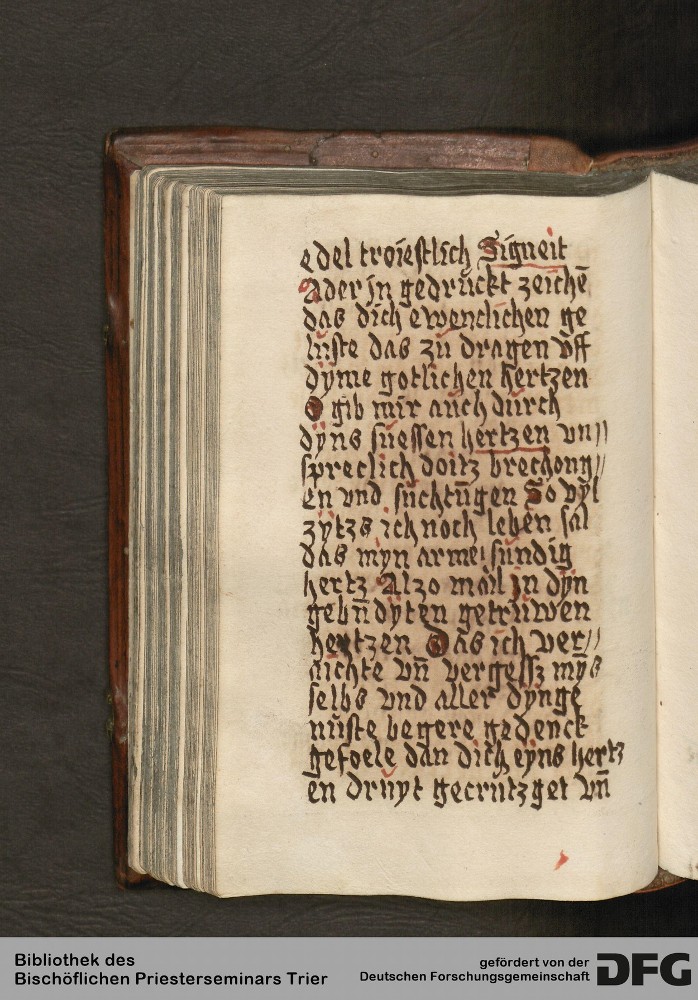 edel troiestlich Signeit
Ader jn gedruckt zeichē
das dich ewenclichen ge
luste das zü dragen vff
dyme gotlichen hertzen
O gib mir aüch dürch
dyns süessen hertzen vn//
spreclich doitz brechong//
en vnd süchtūgen So vyl
zytzs ich noch leben sal
das myn arme sündig
hertz Alzo mail jn dyn
gebn̄dyten getrüwen
hertzen Das ich ver//
nichte vn̄ vergessz mȳs
selbs vnd aller dynge
nüste begere gedenck
gefoele dan dich eyns hertz
en drüyt gecrutzget vn̄
Bibliothek des
Bischöflichen Priesterseminars Trier
gefördert von der
Deutschen Forschungsgemeinschaft DFG